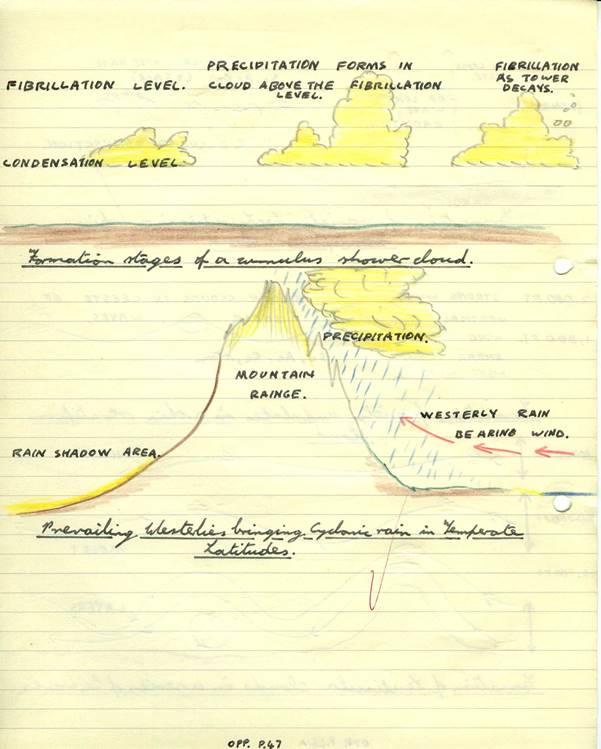 FIBRILLATION LEVEL.
PRECIPITATION FORMS IN
CLOUD ABOVE THE FIBRILLATION
LEVEL.
FIBRILLATION
AS TOWER
DECAYS.
CONDENSATION LEVEL
Formation stages of a cumulus shower cloud.
PRECIPITATION.
MOUNTAIN
RAINGE.
WESTERLY RAIN
BEARING WIND.
RAIN SHADOW AREA.
Prevailing Westerlies bringing Cyclonic rain in Temperate
Latitudes.
OPP. P.47